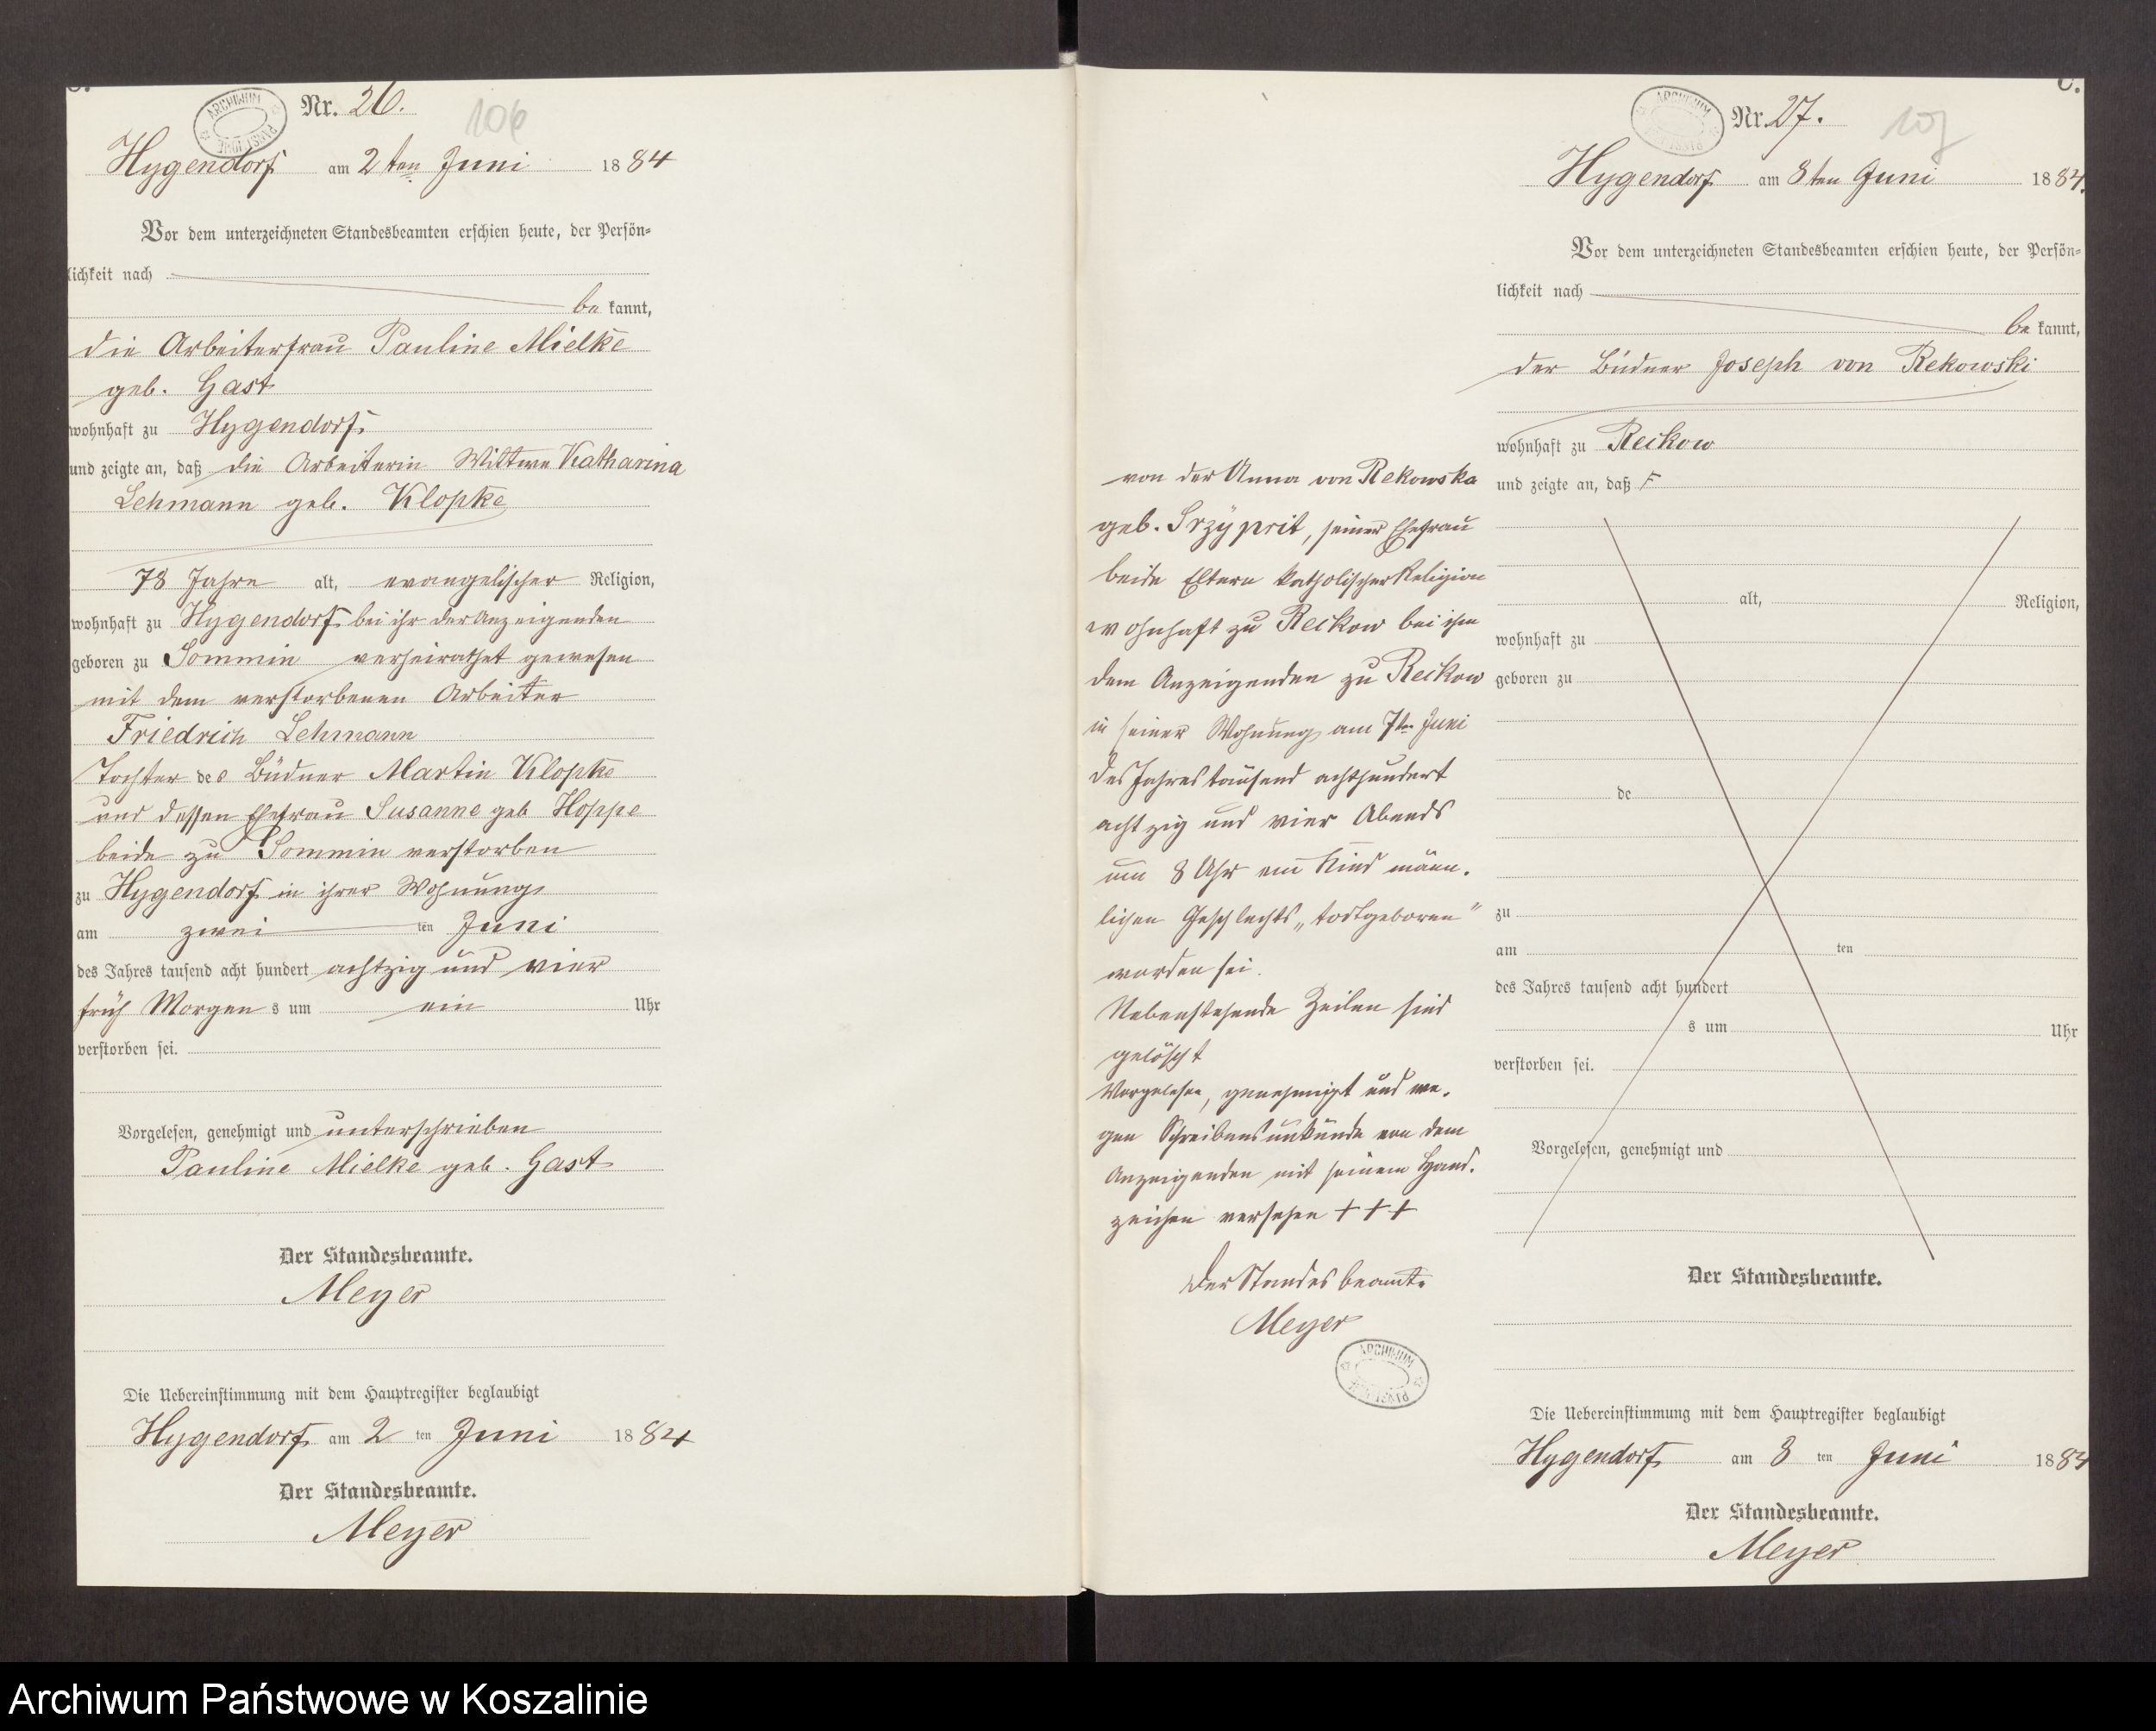 C.
ARCHIWUM PAŃSTWOWE
Nr. 26.
106
Hygendorf am 2ten Juni 1884
Vor dem unterzeichneten Standesbeamten erschien heute, der Persön-
lichkeit nach
bekannt,
die Arbeiterfrau Pauline Mielke
geb. Gast
wohnhaft zu Hygendorf,
und zeigte an, daß die Arbeiterin Wittwe Katharina
Lehmann geb. Klopke
78 Jahre alt, evangelischer Religion,
wohnhaft zu Hygendorf bei ihr der Anzeigenden
geboren zu Sommin verheirathet gewesen
mit dem verstorbenen Arbeiter
Friedrich Lehmann
Tochter des Büdner Martin Klopke
und dessen Ehefrau Susanne geb Hoppe
beide zu Sommin verstorben
zu Hygendorf in ihrer Wohnung
am zwei ten Juni
des Jahres tausend acht hundert achtzig und vier
früh Morgen s um ein Uhr
verstorben sei.
Vorgelesen, genehmigt und unterschrieben
Pauline Mielke geb. Gast
Der Standesbeamte.
Meyer
Die Uebereinstimmung mit dem Hauptregister beglaubigt
Hygendorf am 2 ten Juni 1884
Der Standesbeamte.
Meyer
C.
ARCHIWUM PAŃSTWOWE
Nr. 27.
107
Hygendorf am 8ten Juni 1884.
Vor dem unterzeichneten Standesbeamten erschien heute, der Persön-
lichkeit nach
bekannt,
der Büdner Joseph von Rekowski
wohnhaft zu Reckow
und zeigte an, daß F
alt, Religion,
wohnhaft zu
geboren zu
de
zu
am ten
des Jahres tausend acht hundert
s um Uhr
verstorben sei.
Vorgelesen, genehmigt und
Der Standesbeamte.
Die Uebereinstimmung mit dem Hauptregister beglaubigt
Hygendorf am 8 ten Juni 1884
Der Standesbeamte.
Meyer
von der Anna von Rekowska
geb. Srzyprit, seiner Ehefrau
beide Eltern katholischer Religion
wohnhaft zu Reckow bei ihm
dem Anzeigenden zu Reckow
in seiner Wohnung am 7ten Juni
des Jahres tausend achthundert
achtzig und vier Abends
um 8 Uhr ein Kind männ-
lichen Geschlechts „todtgeboren"
worden sei.
Nebenstehende Zeilen sind
gelöscht
Vorgelesen, genehmigt und we-
gen Schreibensunkunde von dem
Anzeigenden mit seinem Hand-
zeichen versehen + + +
Der Standesbeamte
Meyer
ARCHIWUM PAŃSTWOWE
Archiwum Państwowe w Koszalinie